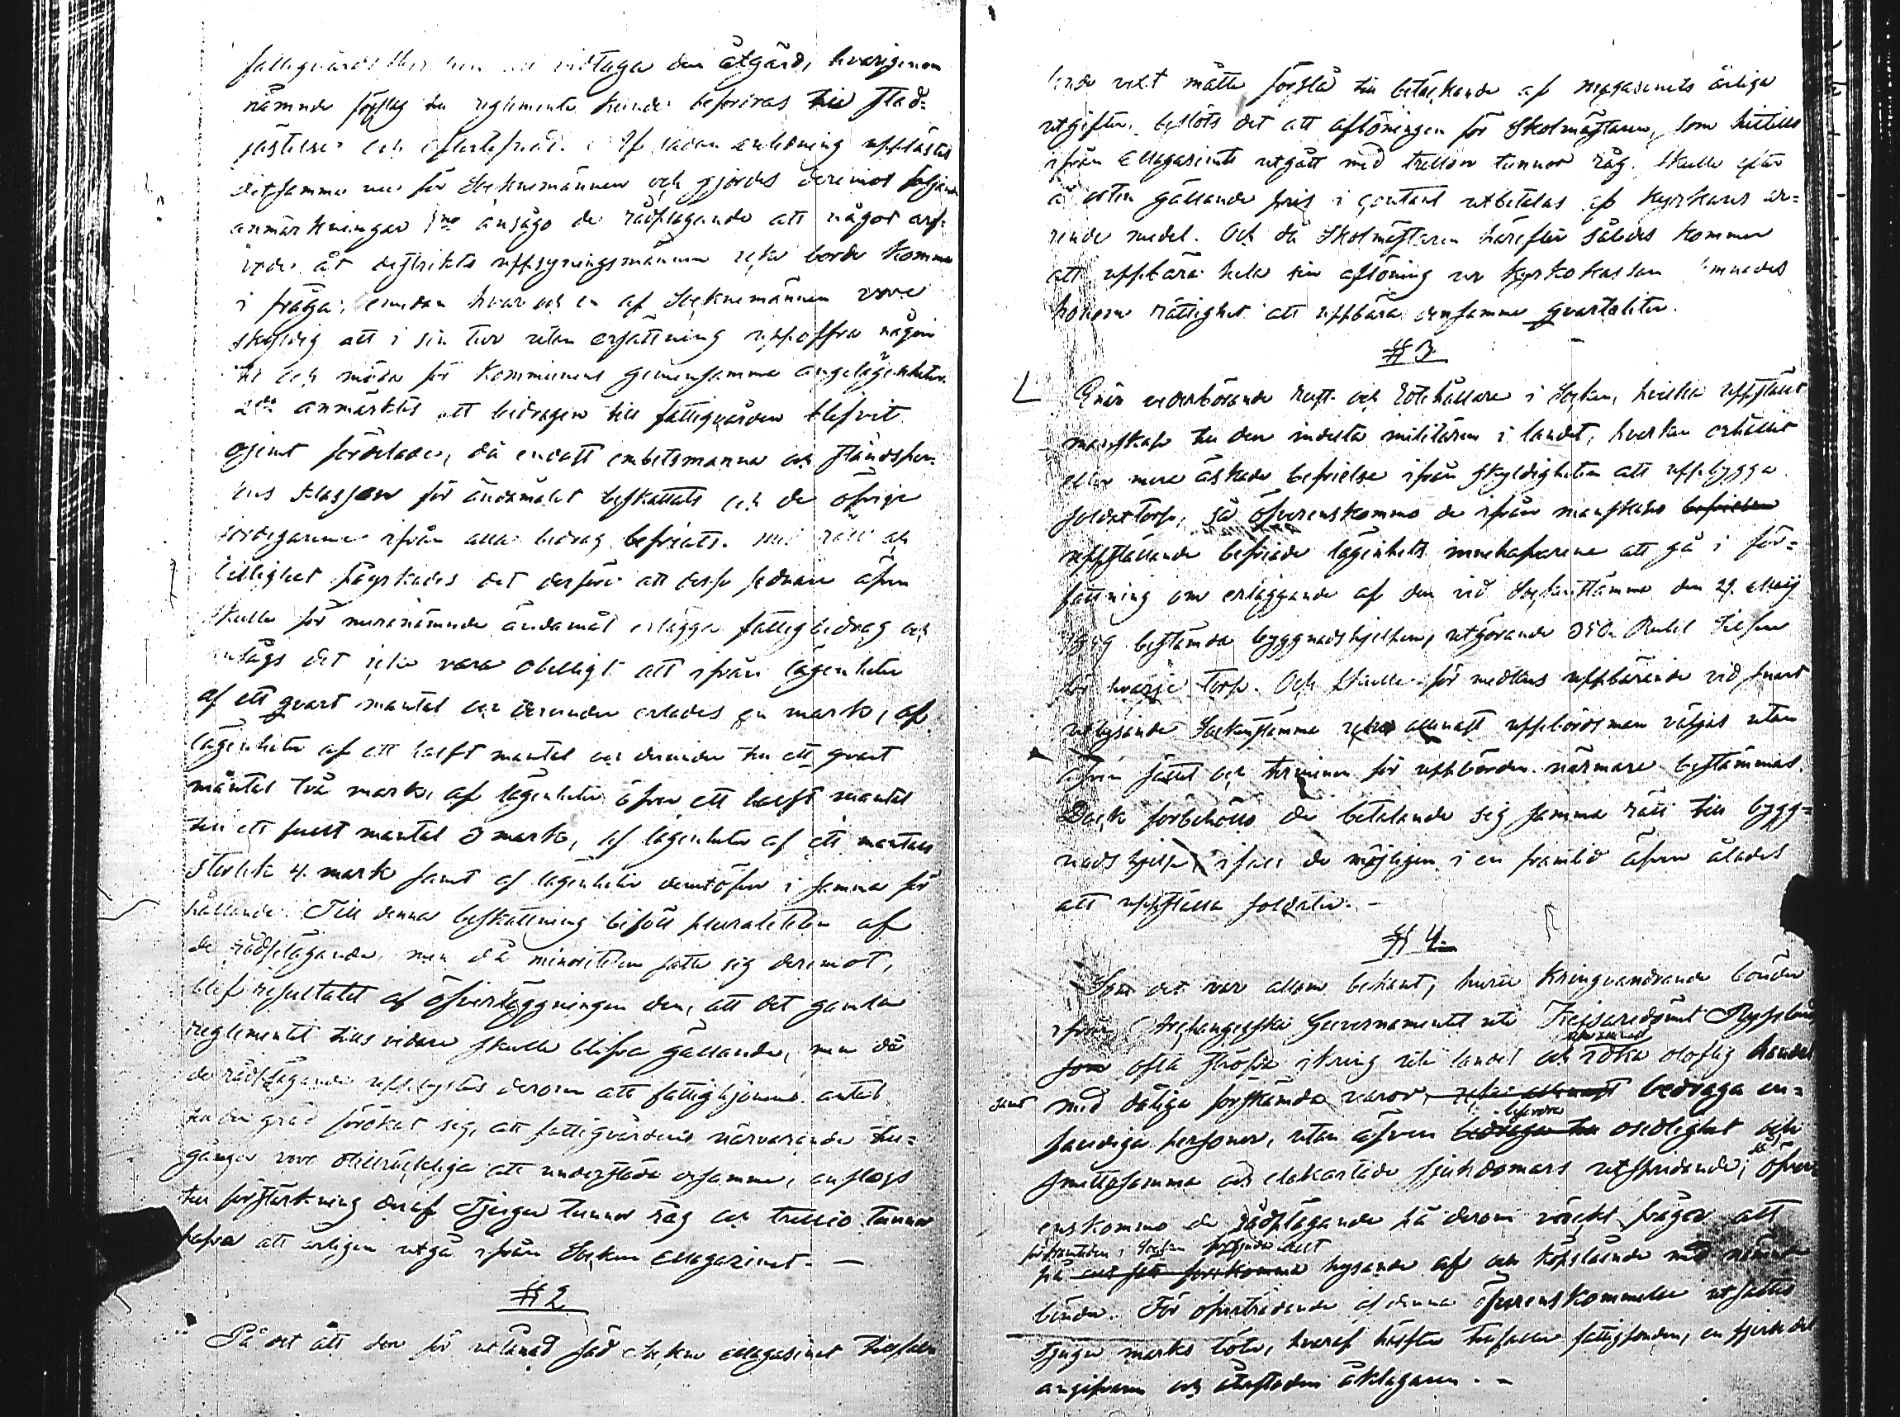 vidtaga den åtgärd, hvarigenom
nämnde förslag till reglemente kunde befordras till stad-
fästelse och efterlefnad. sådan anledning upplästes
detsamma nu för Socknemännen och gjordes deremot följande
anmärkningar 1mo ansågo de rådplägande att något arf-
vode åt distrikts uppsyningsmännen icke borde komma
i fråga, emedan hvar och en af Socknemännen vore
skyldig att i sin tur utan ersättning uppoffra någon
tid och möda för Kommunens gemensamma angelägenheter.
2do anmärktes att bidragen till fattigvården blefvit
ojemt fördelade, då endast embetsmanna och ståndsper-
ners klassen för ändamålet beskattats och de öfrige
jordegarne ifrån alla bidrag befriats. Med rätt och
billighet påyrkades det derföre att desse sednare äfven
skulle för merenämnde ändamål erlägga fattigbidrag och
ansågs det icke vara obilligt att ifrån lägenheter
af ett qvart mantal och derunder erlades en mark, af
lägenheter af ett halft mantal och derunder till ett qvart
mantal två mark, af lägenheter öfver ett halft mantal
till ett fullt mantal 3 mark, af lägenheter af ett mantals
storlek 4 mark samt af lägenheter derutöfver i samma för
hållande. Till denna beskattning biföll pluraliteten af
de rådplägande, men då minoriteten satte sig deremot,
blef resultatet af öfverläggningen den, att det gamla
reglementet tills vidare skulle blifva gällande, men då
de rådplägande upplystes derom att fattighjonens antal
till den grad förökat sig, att fattigvårdens närvarande till-
gångar vore otillräckliga att understöda desamma, anslogs
till förstärkning deraf Tjugu tunnor råg och trettio tunnor
hafra att årligen utgå ifrån Socken Magazinet. —
§ 2
På det att den för utlånad säd Socken Magasinet tillfallande
växt måtte förslå till betäckande af magasinets årliga
utgifter, beslöts det att aflöningen för Skolmästaren, som hittills
ifrån Magasinets utgått med tretton tunnor råg, skulle efter
å orten gällande pris i contant utbetalas af Kyrkans är-
ende medel. Och då Skolmästaren härefter således kommer
att uppbära hela sin aflöning ur Kyrkokassan lemnades
honom rättighet att uppbära densamma qvartaliter.
§ 3
Enär vederbörande rust- och rotehållare i Socken, hvilka uppställt
manskap till den indelta militären i landet, hvarken erhållit
eller mera äskade befrielse ifrån skyldigheten att uppbygga
soldattorp, så öfverenskommo de ifrån manskaps befrielse
uppställande befriade lägenhets innehafvarene att gå i för-
fattning om erläggande af den vid Sockenstämma den 29. Maij
bestämda byggnadshjelpen, utgörande Rubel Silfver
för hvarje torp. Och skulle för medlens uppbärande vid snart
utlysande Sockenstämma icke allenast uppbördsman väljas utan
äfven sättet och terminer för uppbörden närmare bestämmas.
Dock förbehöllo de betalande sig samma rätt till bygg-
nads hjelp ifall de möjligen i en framtid äfven ålades
att uppställa soldater. —
§ 4.
Som det var allom bekant, huru kringvandrande bönder
ifrån Archangelska Gouvernementet uti Kejsaredömet Ryssland
som ofta ströfva ikring uti landet och idka oloflig handel
med dåliga förskämda varor, icke allenast bedraga en-
samt
faldiga personer, utan äfven bedraga till osedlighet och
befordra
smittosamma och elakartade sjukdomars utspridande; så öfver-
enskommo de rådplägande på derom väckt frågor att
på hysande af och köpslående med nämnde
bönder. För öfverträdande af denna öfverenskommelse utsattes
tjugu marks böter, hvaraf hälften tillfaller fattigfonden, en fjerdedel
angifvaren och återstoden åklagaren. —